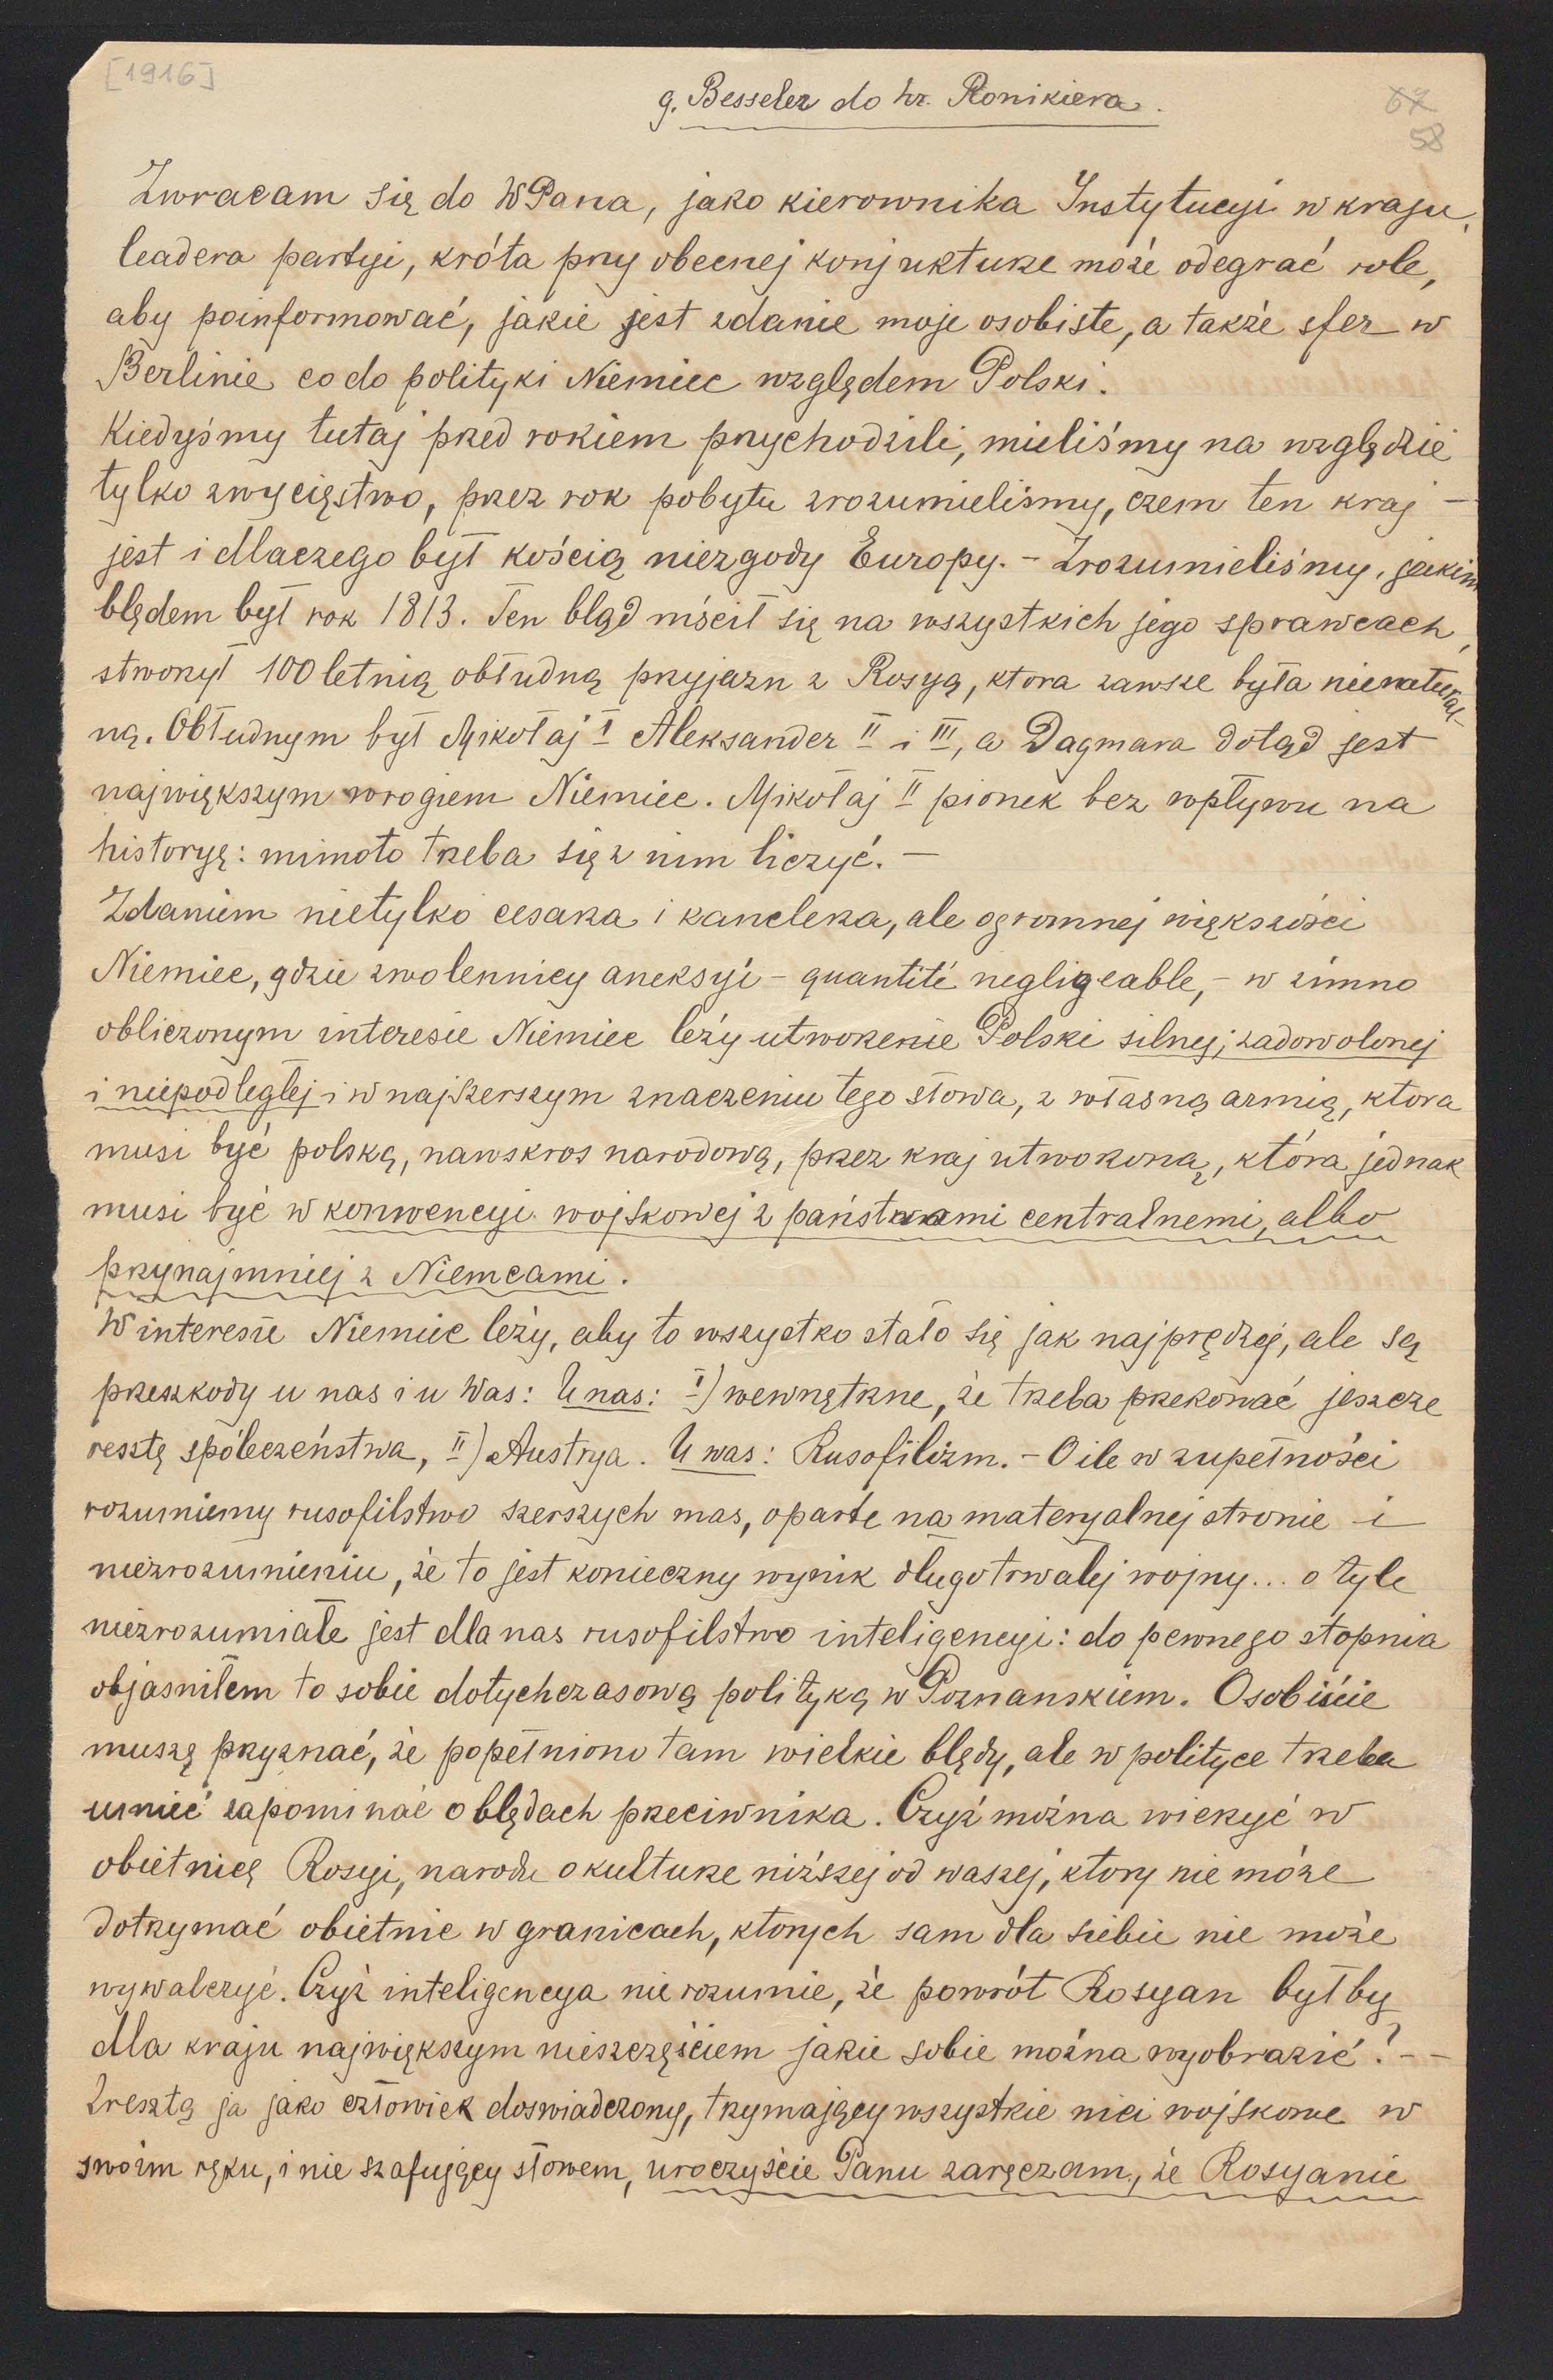 [1916]
g. Besseler do hr. Ronikiera.
67
58
Zwracam się do WPana, jako kierownika Instytucyi w kraju,
leadera partyi, króta przy obecnej konjukturze może odegrać role,
aby poinformować, jakie jest zdanie moje osobiste, a także sfer w
Berlinie co do polityki Niemiec względem Polski.
Kiedyśmy tutaj przed rokiem przychodzili, mieliśmy na względzie
tylko zwycięstwo, przez rok pobytu zrozumieliśmy, czem ten kraj –
jest i dlaczego był kością niezgody Europy. – Zrozumieliśmy, jakim
błędem był rok 1813. Ten błąd mścił się na wszystkich jego sprawcach,
stworzył 100 letnią obłudną przyjazn z Rosyą, ktora zawsze była nienatural-
ną. Obłudnym był Mikołaj I Aleksander II i III, a Dagmara dotąd jest
największym wrogiem Niemiec. Mikołaj II pionek bez wpływu na
historyę: mimoto trzeba się z nim liczyć. –
Zdaniem nietylko cesarza i kanclerza, ale ogromnej większości
Niemiec, gdzie zwolennicy aneksyi – quantité negligeable, – w zimno
obliczonym interesie Niemiec leży utworzenie Polski silnej, zadowolonej
i niepodległej i w najszerszym znaczeniu tego słowa, z własną armią, ktora
musi być polską, nawskros narodową, przez kraj utworzoną, która jednak
musi być w konwencyi wojskowej z państwami centralnemi, albo
przynajmniej z Niemcami.
W interesie Niemiec leży, aby to wszystko stało się jak najprędzej, ale są
przeszkody u nas i u Was: U nas: I) wewnętrzne, że trzeba przekonać jeszcze
resztę społeczeństwa, II) Austrya. U was: Rusofilizm. – O ile w zupełności
rozumiemy rusofilstwo szerszych mas, oparte na materyalnej stronie i
niezrozumieniu, że to jest konieczny wynik długotrwałej wojny... o tyle
niezrozumiałe jest dla nas rusofilstwo inteligencyi: do pewnego stopnia
objasniłem to sobie dotychczasową polityką w Poznanskiem. Osobiście
muszę przyznać, że popełniono tam wielkie błędy, ale w polityce trzeba
umieć zapominać o błędach przeciwnika. Czyż można wierzyć w
obietnicę Rosyi, narodu o kulturze niższej od waszej, ktory nie może
dotrzymać obietnic w granicach, ktorych sam dla siebie nie może
wywalczyć. Czyż inteligencya nie rozumie, że powrót Rosyan byłby
dla kraju największym nieszczęściem jakie sobie można wyobrazić? – –
Zresztą ja jako człowiek doswiadczony, trzymający wszystkie nici wojskowe w
swoim ręku, i nie szafujący słowem, uroczyście Panu zaręczam, że Rosyanie